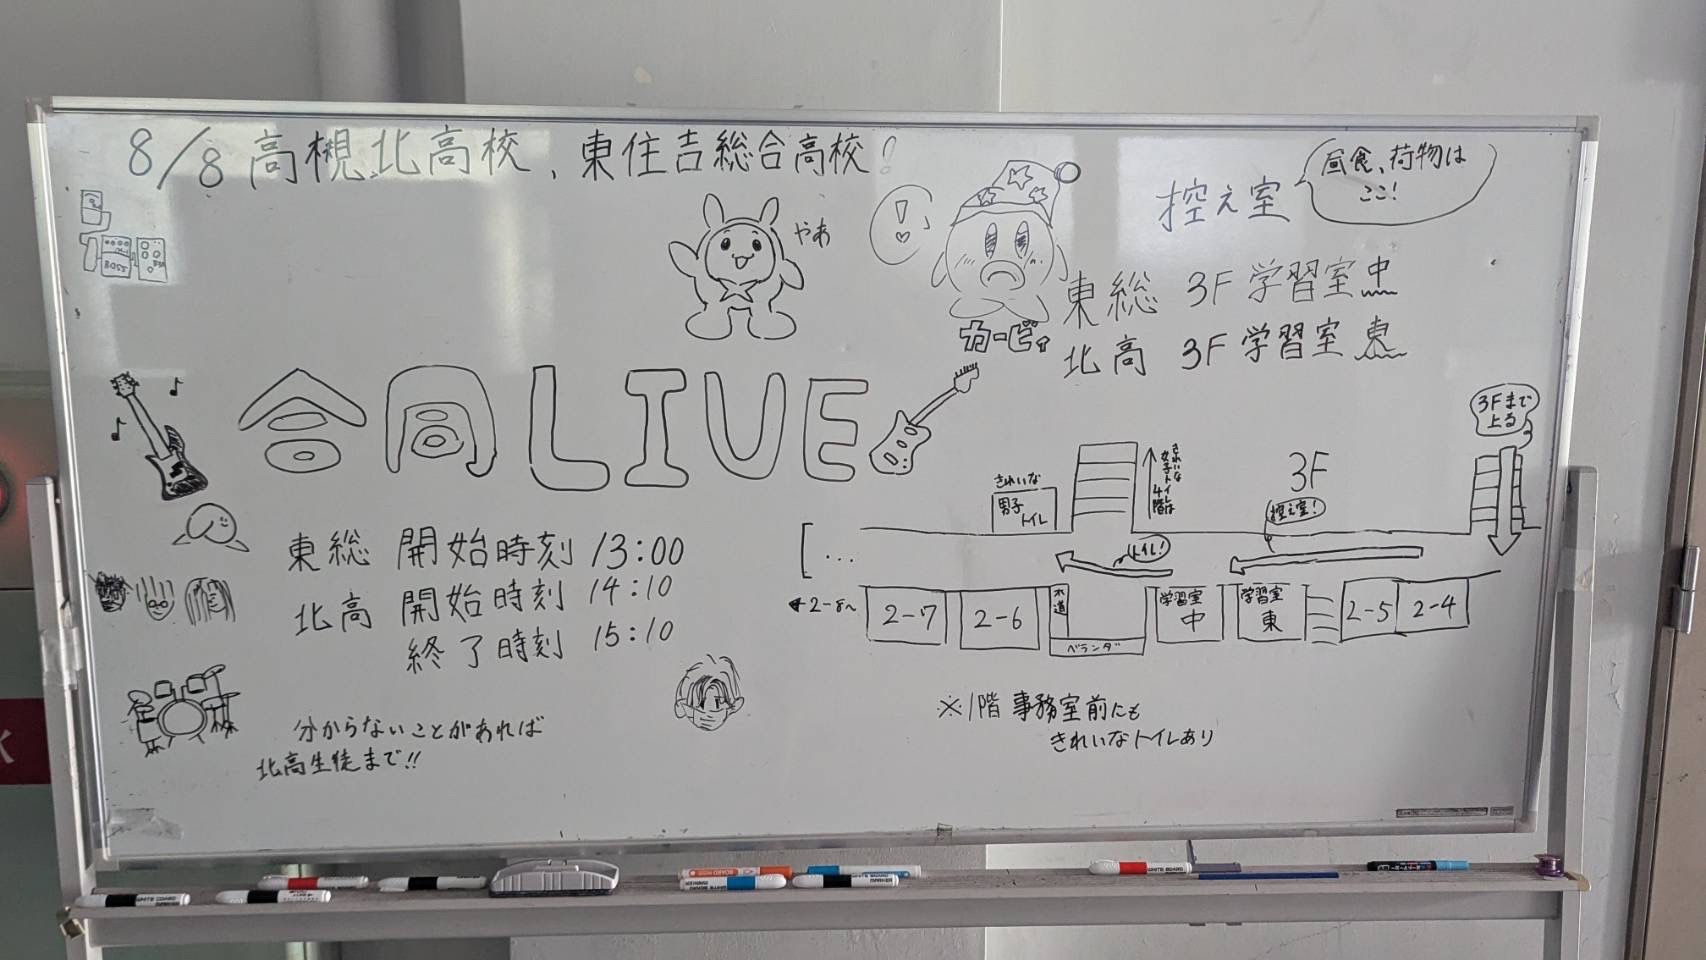 8/8 高槻北高校、東住吉総合高校!
やあ
カービィ
控え室
昼食、荷物は
ここ!
東総 3F 学習室中
北高 3F 学習室東
BOSS
合同LIVE
東総 開始時刻 13:00
北高 開始時刻 14:10
終了時刻 15:10
分からないことがあれば
北高生徒まで!!
3Fまで
上る
3F
控え室!
きれいな
男子
トイレ
きれいな
女子トイレは
4階
トイレ!
…
←2-8〜
2-7
2-6
水道
ベランダ
学習室
中
学習室
東
2-5
2-4
※1階 事務室前にも
きれいなトイレあり